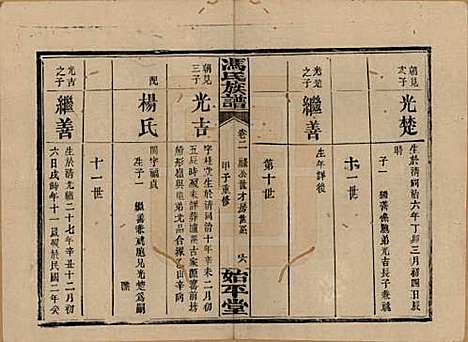 朝見
次子
光楚
生於清同治六年丁卯三月初四日辰
時
子一
繼善兼祧胞弟光吉長子兼祧
十一世
光楚
之子
繼善
生年詳後
第十世
馮氏族譜
卷二
甲子重修
始平堂
朝見
三子
光吉
字桂堂生於清同治十年辛未二月初
五辰時
配
楊氏
閨字福貞
生子一
繼善兼祧胞兄光楚為嗣
十一世
光吉
之子
繼善
生於清光緒二十七年辛丑十二月初
六日戌時年十一歲歿於民國二年癸